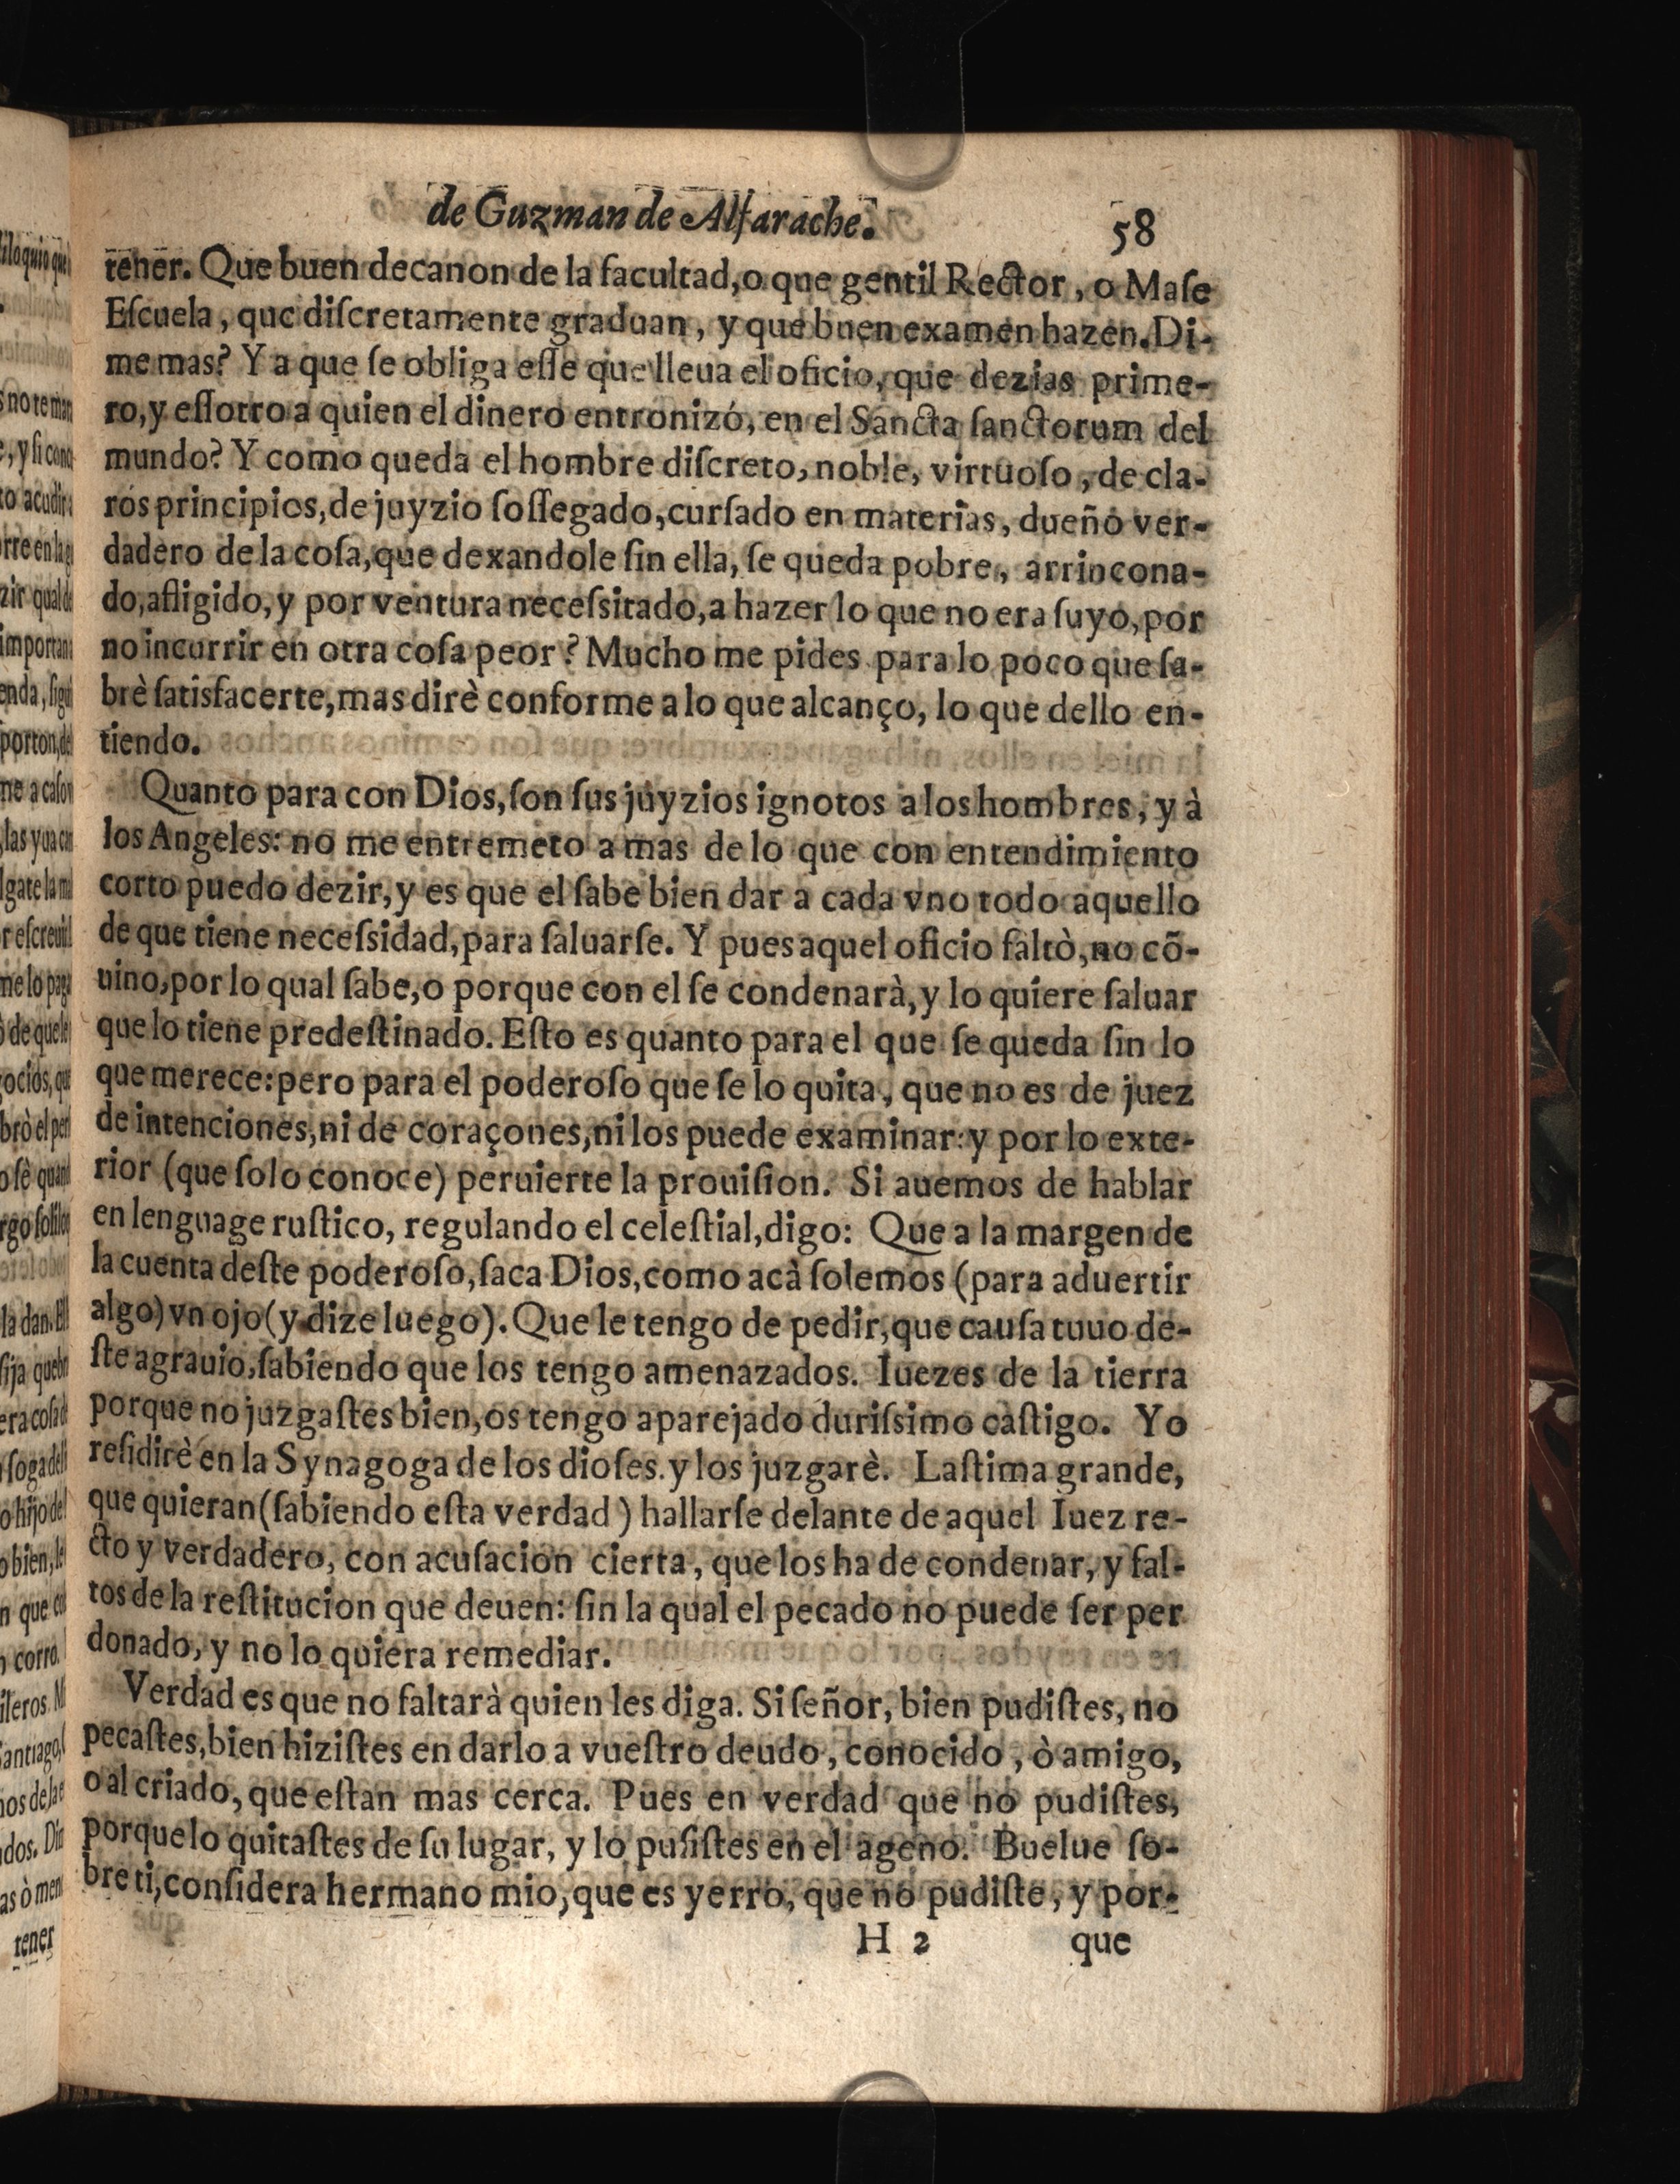 de Guzman de Alfarache. 58
tener. Que buen decanon de la facultad, o que gentil Rector, o Maſe
Eſcuela, que diſcretamente graduan, y que buen examen hazen. Di-
me mas? Y a que ſe obliga eſſe que lleua el oficio, que dezias prime-
ro, y eſſotro a quien el dinero entronizó, en el Sancta ſanctorum del
mundo? Y como queda el hombre diſcreto, noble, virtuoſo, de cla-
ros principios, de juyzio ſoſſegado, curſado en materias, dueño ver-
dadero de la coſa, que dexandole ſin ella, ſe queda pobre, arrincona-
do, afligido, y por ventura neceſsitado, a hazer lo que no era ſuyo, por
no incurrir en otra coſa peor? Mucho me pides para lo poco que ſa-
brè ſatisfacerte, mas dirè conforme a lo que alcanço, lo que dello en-
tiendo.
Quanto para con Dios, ſon ſus juyzios ignotos a los hombres, y à
los Angeles: no me entremeto a mas de lo que con entendimiento
corto puedo dezir, y es que el ſabe bien dar a cada vno todo aquello
de que tiene neceſsidad, para ſaluarſe. Y pues aquel oficio faltò, no cõ-
uino, por lo qual ſabe, o porque con el ſe condenarà, y lo quiere ſaluar
que lo tiene predeſtinado. Eſto es quanto para el que ſe queda ſin lo
que merece: pero para el poderoſo que ſe lo quita, que no es de juez
de intenciones, ni de coraçones, ni los puede examinar: y por lo exte-
rior (que ſolo conoce) peruierte la prouiſion. Si auemos de hablar
en lenguage ruſtico, regulando el celeſtial, digo: Que a la margen de
la cuenta deſte poderoſo, ſaca Dios, como acà ſolemos (para aduertir
algo) vn ojo (y dize luego). Que le tengo de pedir, que cauſa tuuo de-
ſte agrauio, ſabiendo que los tengo amenazados. Iuezes de la tierra
porque no juzgaſtes bien, os tengo aparejado duriſsimo caſtigo. Yo
reſidirè en la Synagoga de los dioſes. y los juzgarè. Laſtima grande,
que quieran (ſabiendo eſta verdad) hallarſe delante de aquel Iuez re-
cto y verdadero, con acuſacion cierta, que los ha de condenar, y fal-
tos de la reſtitucion que deuen: ſin la qual el pecado no puede ſer per
donado, y no lo quiera remediar.
Verdad es que no faltarà quien les diga. Si ſeñor, bien pudiſtes, no
pecaſtes, bien hiziſtes en darlo a vueſtro deudo, conocido, ò amigo,
o al criado, que eſtan mas cerca. Pues en verdad que no pudiſtes,
porque lo quitaſtes de ſu lugar, y lo puſiſtes en el ageno. Buelue ſo-
bre ti, conſidera hermano mio, que es yerro, que no pudiſte, y por-
H 2 que